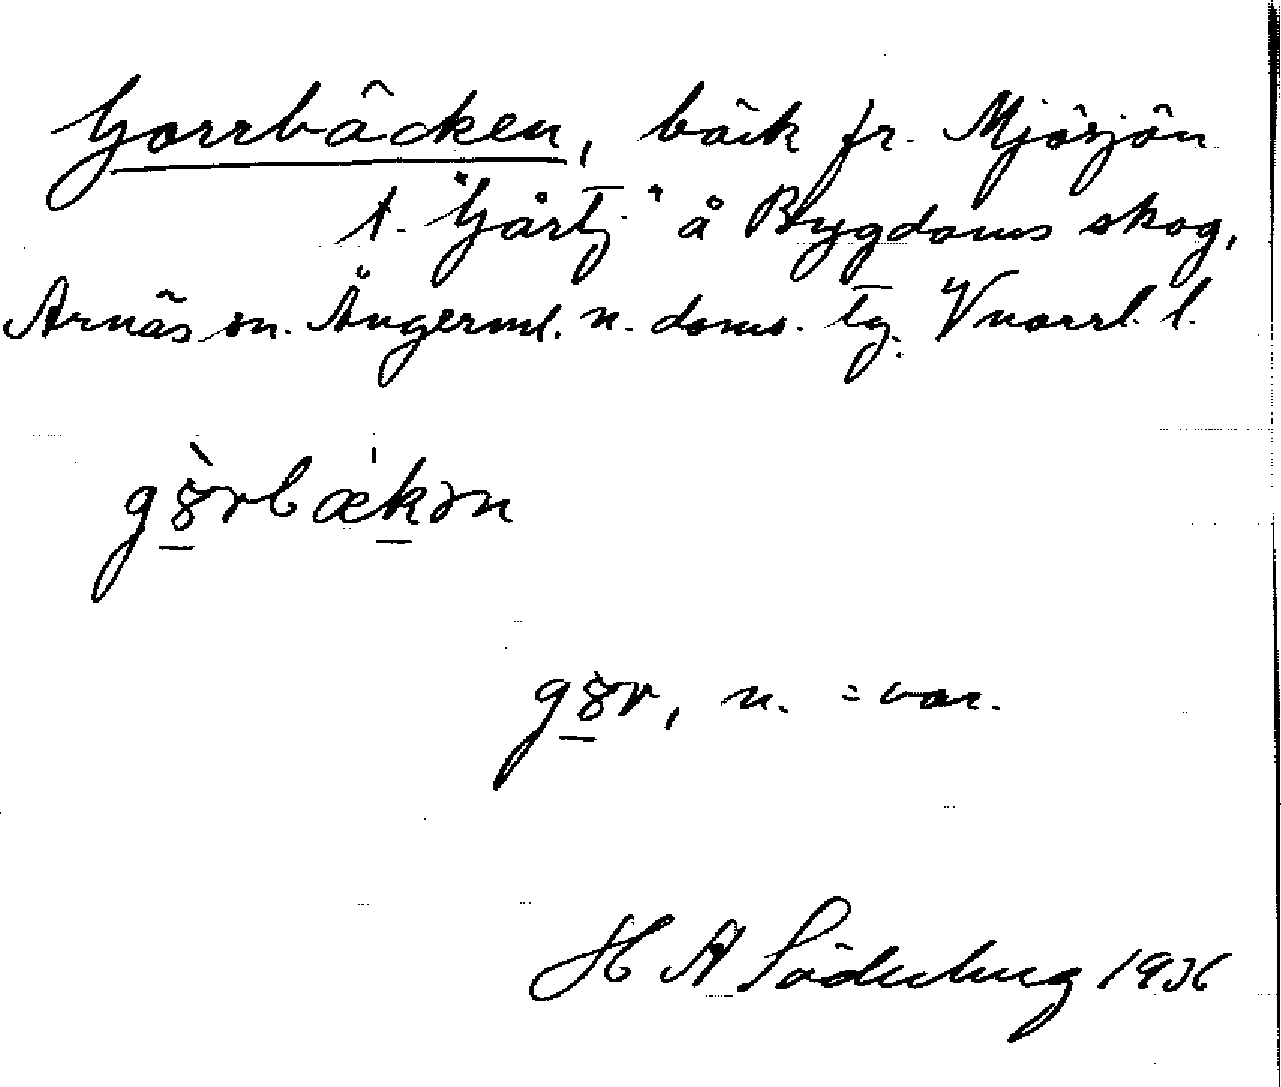 Gorrbäcken, bäck fr. Mjösjön
t. "Gårtj." å Bygdoms skog,
Arnäs sn. Ångerml. n. doms. tg. Vnorrl. l.
gȯrbækən
gȯr, n. = var.
H A Söderberg 1936